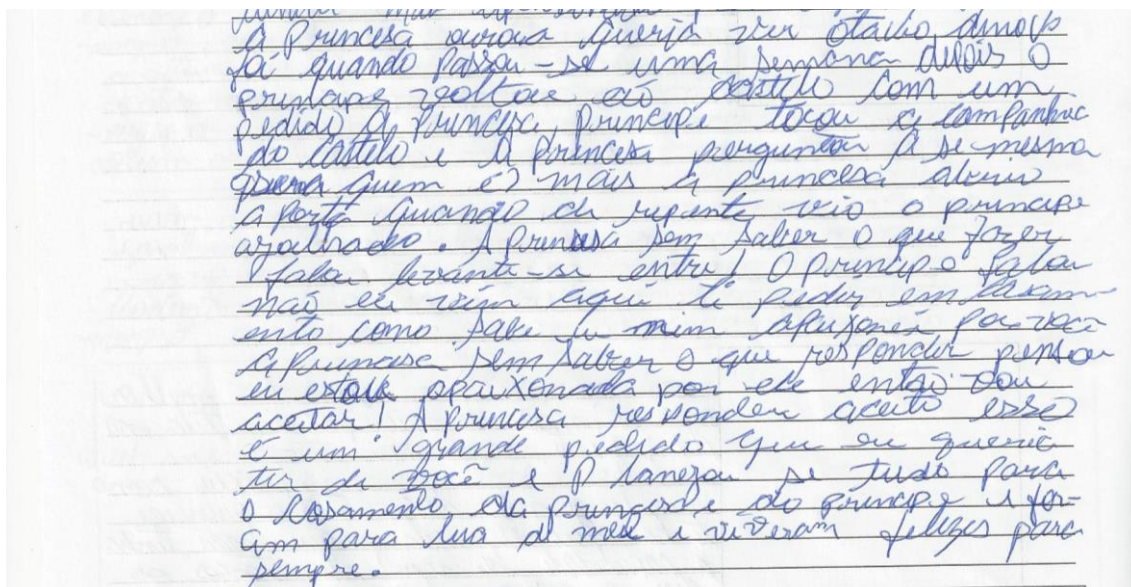 A Princesa aurora queria ver otavio
foi quando Passou-se uma semana depois o
principe voltou ao castelo com um
pedido a princesa, principe tocou a companhia
do castelo e A princesa perguntou a se-mesma
quem é? mais a princesa abriu
a porta quando de repente veio o principe
ajoelhado. A princesa sem saber o que fazer
falou levante-se entre! O principe falou
não eu vim aqui te pedir em casam-
ento como sabe me apaixonei por você
a princesa sem saber o que responder pensou
eu estou apaixonada por ele então vou
aceitar! A princesa respondeu aceito esse
é um grande pedido que eu queria
ter de você e Planejou se tudo para
o casamento da princesa e do principe e for-
am para lua de mel e viveram felizes para
sempre.